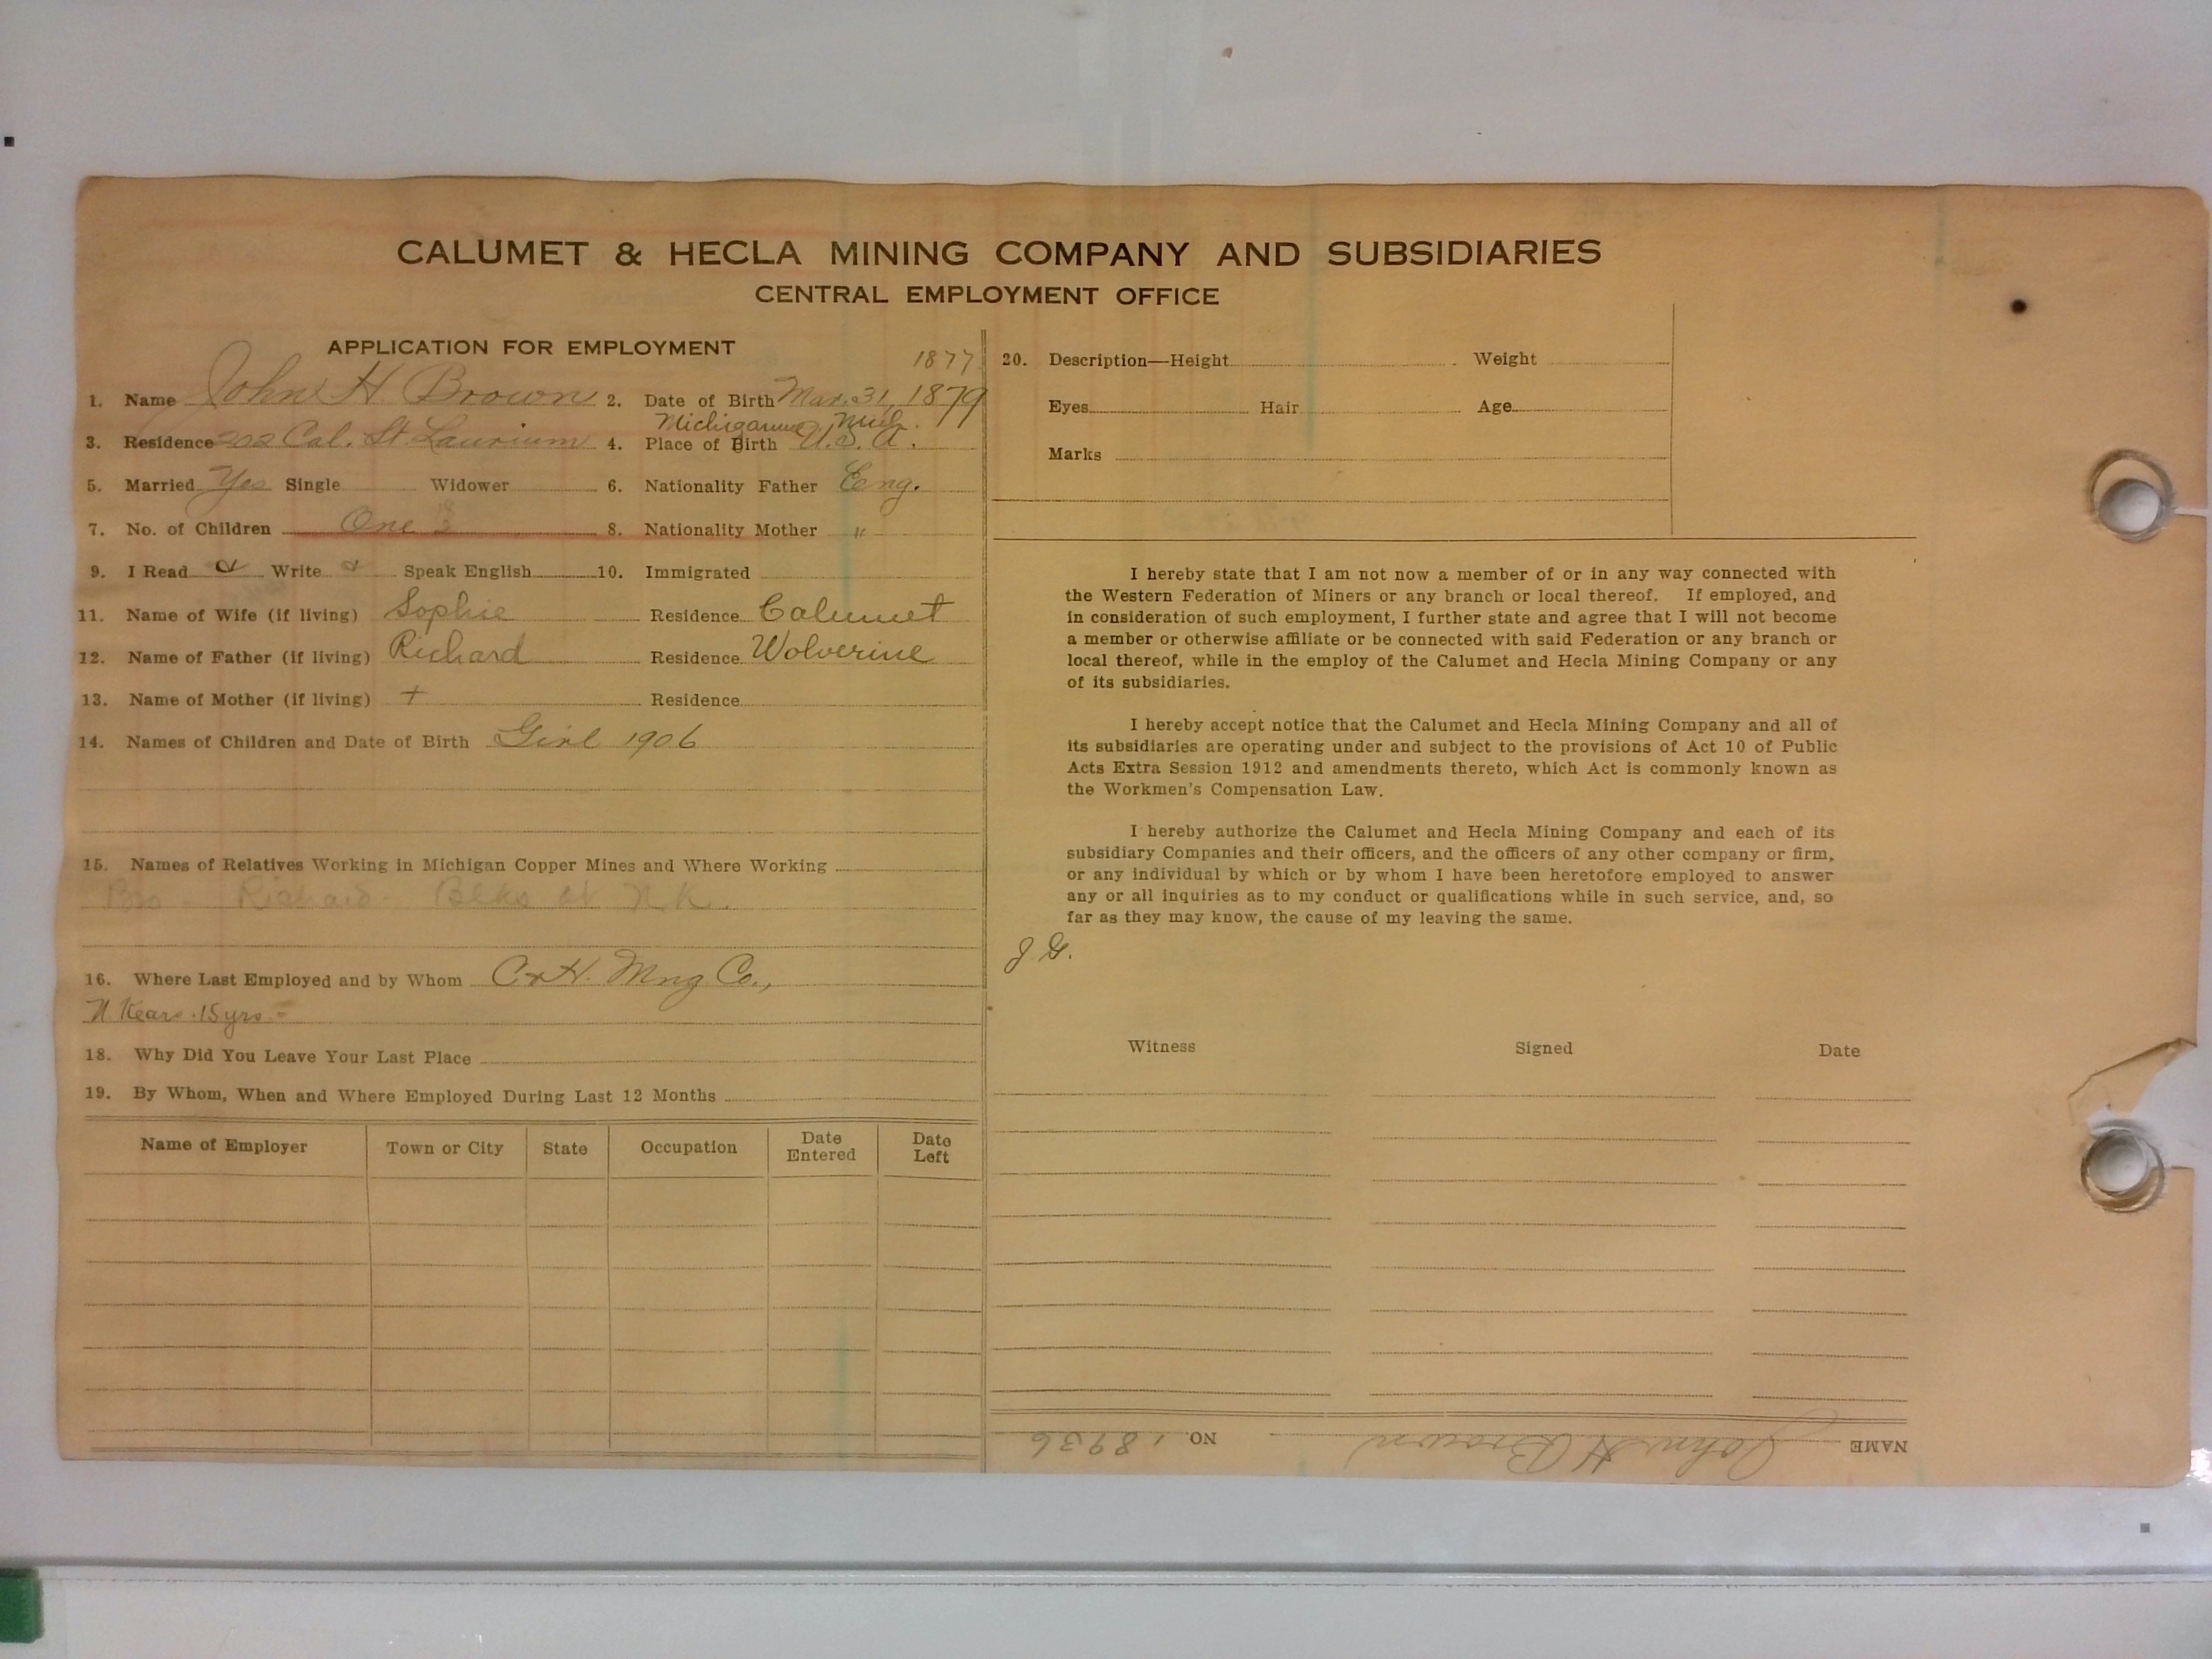 CALUMET & HECLA MINING COMPANY AND SUBSIDIARIES
CENTRAL EMPLOYMENT OFFICE
APPLICATION FOR EMPLOYMENT
1877
1. Name John H Brown 2. Date of Birth Mar. 31, 1879
Michigamme Mich.
3. Residence 202 Cal. St. Laurium 4. Place of Birth U.S.A.
5. Married Yes Single Widower 6. Nationality Father Eng.
7. No. of Children One 8. Nationality Mother "
9. I Read Write Speak English 10. Immigrated
11. Name of Wife (if living) Sophie Residence Calumet
12. Name of Father (if living) Richard Residence Wolverine
13. Name of Mother (if living) + Residence
14. Names of Children and Date of Birth Girl 1906
15. Names of Relatives Working in Michigan Copper Mines and Where Working
Bro - Richard - Blks at N.K.
16. Where Last Employed and by Whom C & H. Mng. Co.,
N Kears. 15 yrs. -
18. Why Did You Leave Your Last Place
19. By Whom, When and Where Employed During Last 12 Months
Name of Employer Town or City State Occupation Date Entered Date Left
20. Description—Height Weight
Eyes Hair Age
Marks
I hereby state that I am not now a member of or in any way connected with
the Western Federation of Miners or any branch or local thereof. If employed, and
in consideration of such employment, I further state and agree that I will not become
a member or otherwise affiliate or be connected with said Federation or any branch or
local thereof, while in the employ of the Calumet and Hecla Mining Company or any
of its subsidiaries.
I hereby accept notice that the Calumet and Hecla Mining Company and all of
its subsidiaries are operating under and subject to the provisions of Act 10 of Public
Acts Extra Session 1912 and amendments thereto, which Act is commonly known as
the Workmen's Compensation Law.
I hereby authorize the Calumet and Hecla Mining Company and each of its
subsidiary Companies and their officers, and the officers of any other company or firm,
or any individual by which or by whom I have been heretofore employed to answer
any or all inquiries as to my conduct or qualifications while in such service, and, so
far as they may know, the cause of my leaving the same.
J. G.
Witness Signed Date
NAME John H Brown NO. 18936